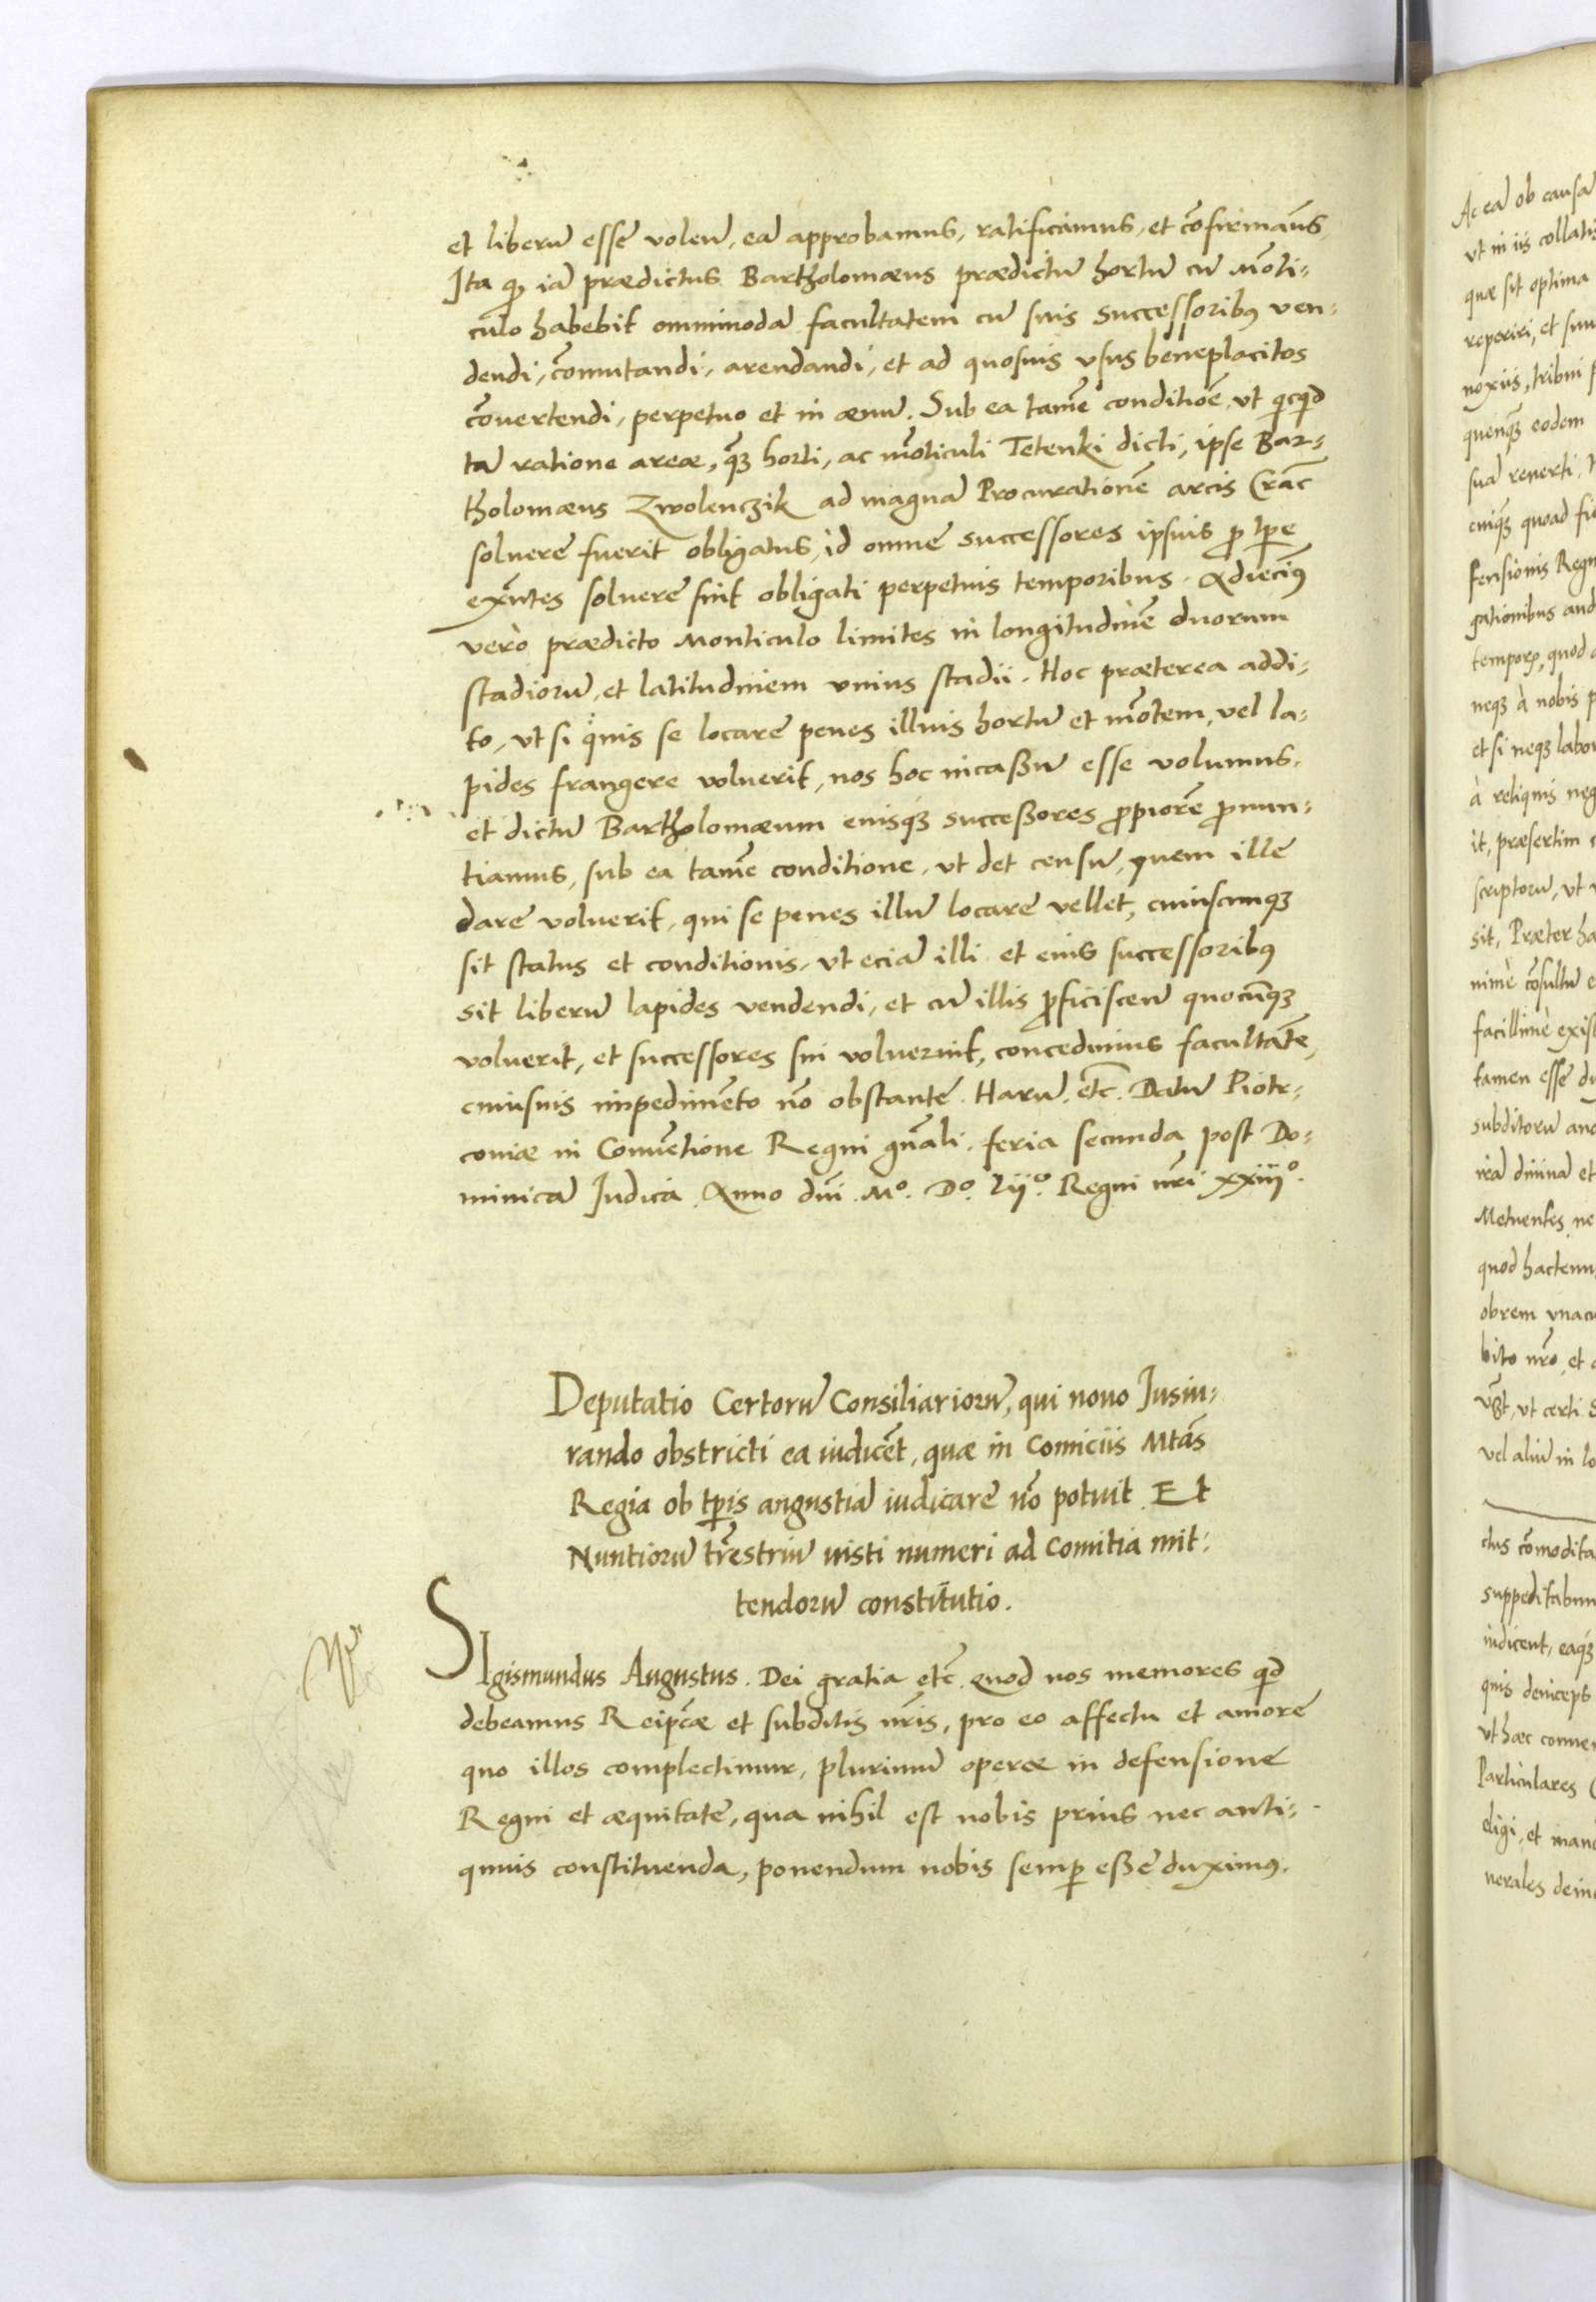 et liberũ esse volen̄, eã approbamus, ratificamus, et cõfirmam̃us
Ita q̃, iã prædictus Bartholomæus prædictũ hortũ cũ mõti-
culo habebit omnimodã facultatem cũ suis successoribꝰ ven-
dendi, cõmutandi, arendandi, et ad quosuis vsus beneplacitos
cõuertendi, perpetuo et in æuũ. Sub ea tamẽ conditiõe, vt qicqid
tã ratione areæ, q̃ꝫ horti, ac mõticuli Tetenki dicti, ipse Bar-
tholomæus Zwolenczik ad magnã Procurationẽ arcis Crac̃
soluere fuerit obligatus, id omne successores ipsius ꝓ tꝑe
exñtes soluere sint obligati perpetuis temporibus. Adiecimꝰ
verò prædicto Monticulo limites in longitudinẽ duorum
stadiorũ, et latitudinem vnius stadii. Hoc præterea addi-
to, vt si quis se locare penes illius hortũ et mõtem, vel la-
pides frangere voluerit, nos hoc incaßũ esse volumus.
et dictũ Bartholomæum eiusqꝫ succeßores ꝓpiorẽ ꝓnun-
tiamus, sub ea tamẽ conditione, vt det censũ, quem ille
dare voluerit, qui se penes illũ locare vellet, cuiuscunqꝫ
sit status et conditionis, vt eciã illi et eius successoribꝰ
sit liberũ lapides vendendi, et cũ illis ꝓficiscen̄ quocũqꝫ
voluerit, et successores sui voluerint, concedimus facultatẽ,
cuiusuis impedimẽto nõ obstante. Harũ etc̃. Datũ Piotr-
coviæ in Conuẽtione Regni gñali. feria secunda post Do-
minicã Iudica. Anno dñi Mº. Dº. lijº. Regni nr̃i xxiijº.
Deputatio Certorũ Consiliariorũ, qui nouo Iusiu-
rando obstricti ea iudicẽt, quæ in Comiciis Mtãs
Regia ob tꝑis angustiã iudicare nõ potuit. Et
Nuntiorũ tr̃estriũ iusti numeri ad Comitia mit-
tendorũ constitutio.
SIgismundus Augustus. Dei gratia etc̃. Quod nos memores qd
debeamus Reipc̃æ et subditis nr̃is, pro eo affectu et amore
quo illos complectimur, plurimũ operæ in defensione
Regni et æquitate, qua nihil est nobis prius nec anti-
quius constituenda, ponendum nobis semꝑ eße duximꝰ.
Ac eã ob causã
vt in iis collatis
quæ sit optima
reperiri, et suu
noxiis, tribui
quenqꝫ eodem
suã reuerti.
cuiqꝫ quoad fi
fensionis Regn
gationibus aud
temporꝫ, quod
neqꝫ à nobis p
et si neqꝫ labor
à reliquis neg
it, præsertim
scriptorũ, vt
sit, Præter ha
nimè cõsultũ e
facillimè exist
tamen esse du
subditorũ
irã diuinã et
Metuentes ne
quod hactenu
obrem vnacu
bito nr̃o et
vt certi
vel aliũ in lo
ctus cõmodita
suppeditabun
iudicent, eaqꝫ
quis deinceps
vt hæc conue
Particulares
eligi, et mand
nerales dein